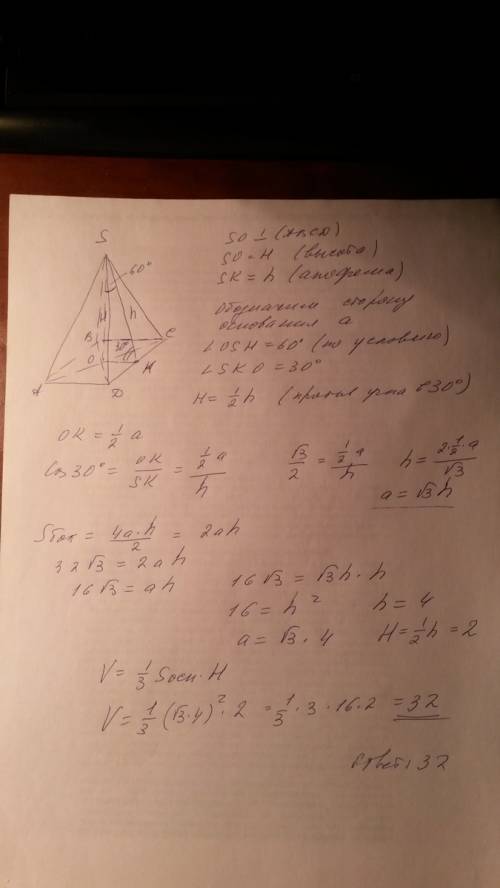 S
60°
H
h
B
C
30°
O
H
A
D
SO ⊥ (ABCD)
SO = H (высота)
SK = h (апофема)
Обозначим сторону
основания a
∠OSH = 60° (по условию)
∠SKO = 30°
H = 1/2 h (против угла в 30°)
OK = 1/2 a
Cos 30° = OK/SK = (1/2 a)/h
√3/2 = (1/2 a)/h
h = (2·1/2·a)/√3
a = √3 h
Sбок = 4a·h/2 = 2ah
32√3 = 2ah
16√3 = ah
16√3 = √3h·h
16 = h²
h = 4
a = √3 · 4
H = 1/2 h = 2
V = 1/3 Sосн · H
V = 1/3 (√3·4)² · 2 = 1/3 · 3 · 16 · 2 = 32
Ответ: 32